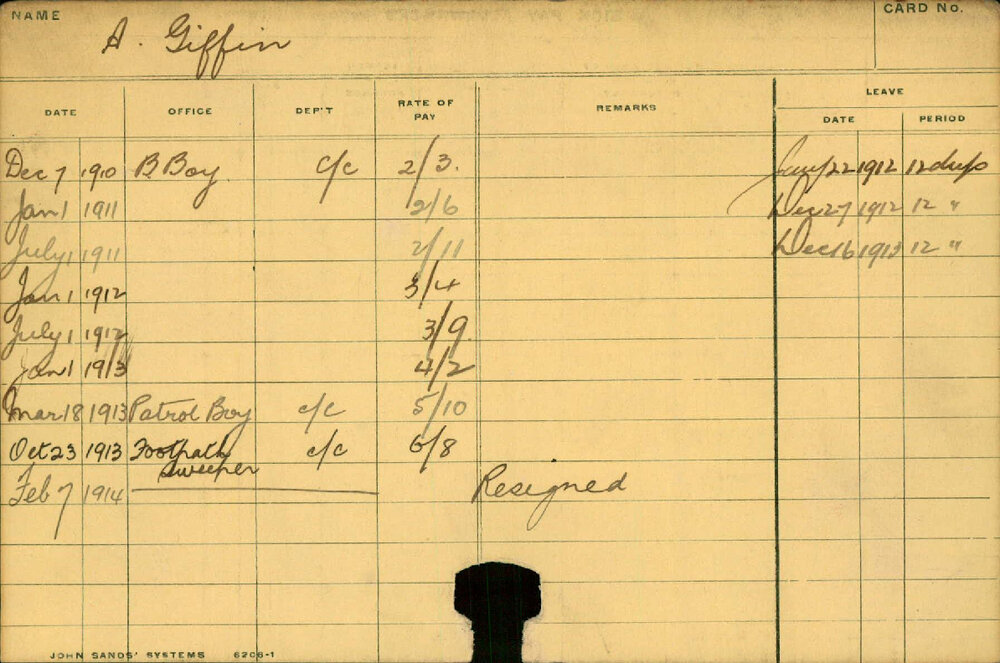 NAME CARD No.
A. Giffin
LEAVE
DATE OFFICE DEP'T RATE OF PAY REMARKS DATE PERIOD
Dec 7 1910 B. Boy c/c 2/3. Jany 22 1912 12 days
Jan 1 1911 2/6 Dec 27 1912 12 "
July 1 1911 2/11 Dec 16 1913 12 "
Jan 1 1912 3/4
July 1 1912 3/9
Jan 1 1913 4/2
Mar 18 1913 Patrol Boy c/c 5/10
Oct 23 1913 Footpath Sweeper c/c 6/8
Feb 7 1914 Resigned
JOHN SANDS' SYSTEMS 6206-1